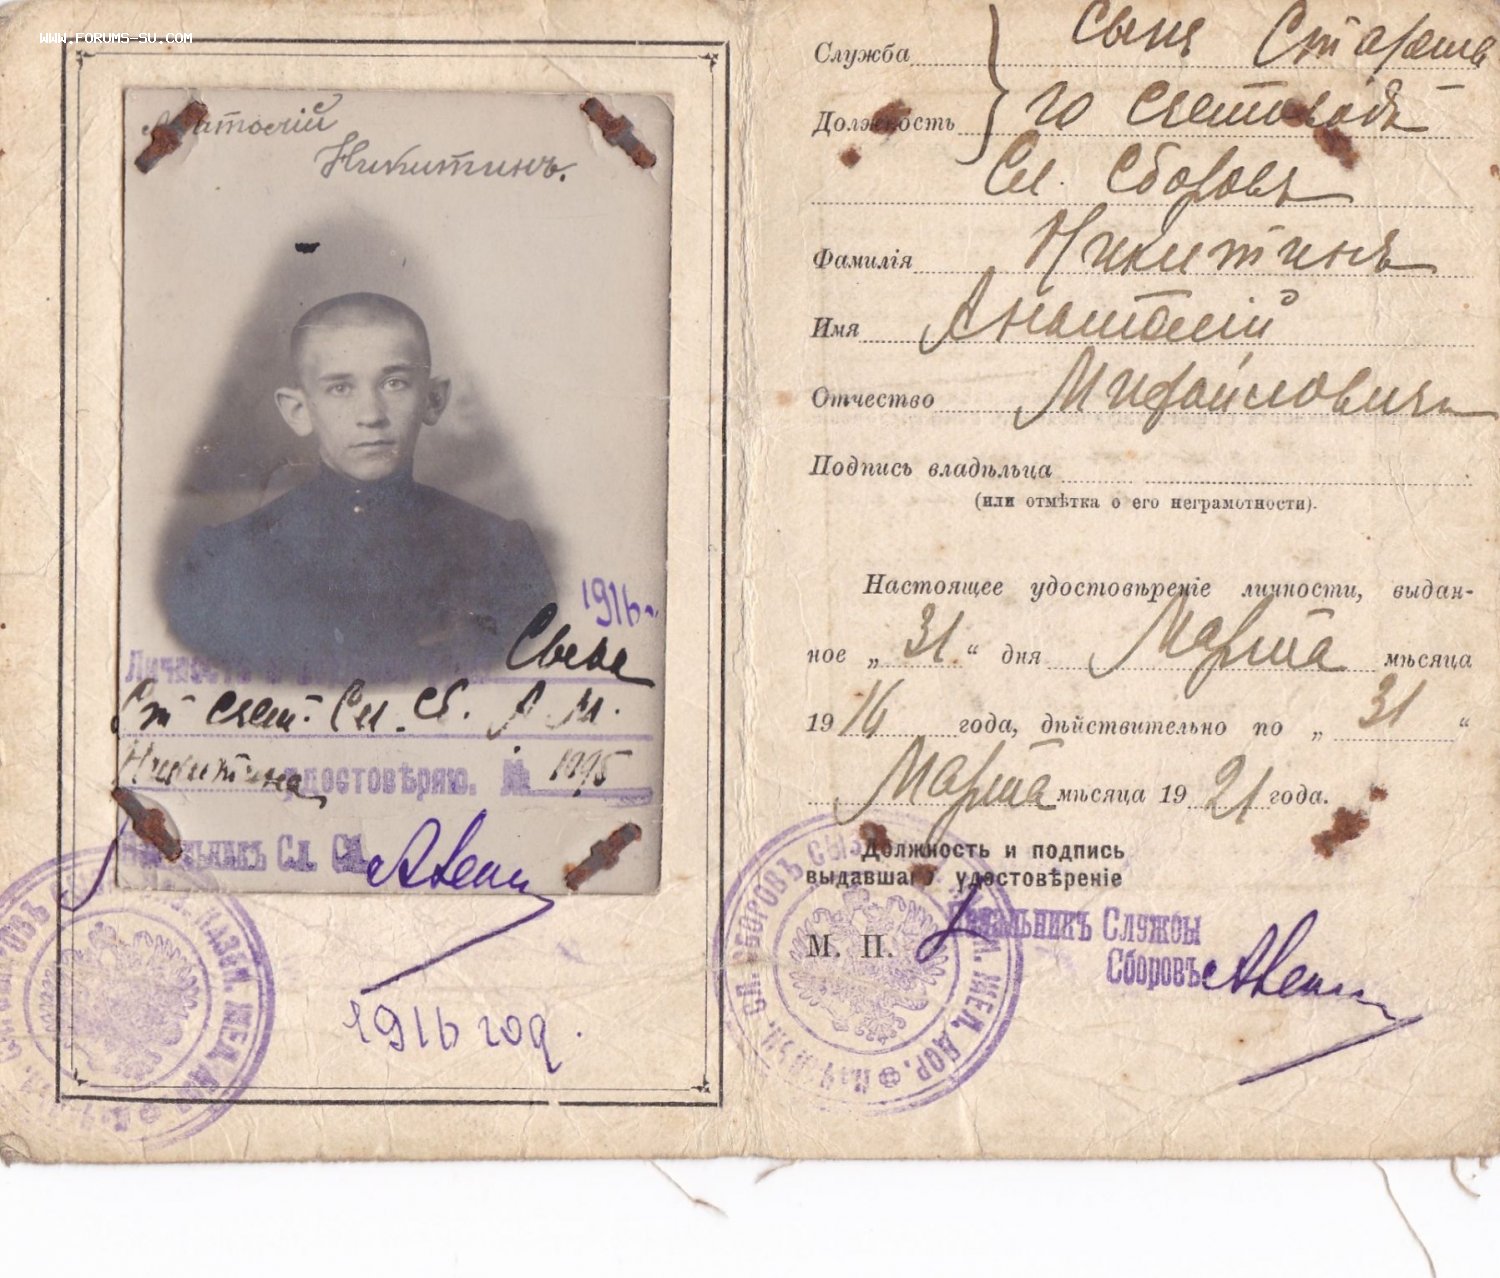 WWW.FORUMS-SU.COM
Анатолій
Никитинъ.
1916 г.
Личность Сына
Ст счет. Сл. Сб. А. М.
Никитина удостовѣряю. № 1995
Начальникъ Сл. Сб.
1916 год.
Служба Сына Старша
Должность го счетовода
Сл. Сборовъ
Фамилія Никитинъ
Имя Анатолій
Отчество Михайловичъ
Подпись владѣльца
(или отмѣтка о его неграмотности).
Настоящее удостовѣреніе личности, выдан-
ное „ 31 “ дня Марта мѣсяца
19 16 года, дѣйствительно по „ 31 “
Марта мѣсяца 19 21 года.
Должность и подпись
выдавшаго удостовѣреніе
Начальникъ Службы
М. П.
Сборовъ
СЛ. СБОРОВЪ СЫЗ. ЖЕЛ. ДОР.
КАЗЕН. ЖЕЛ. ДОР.